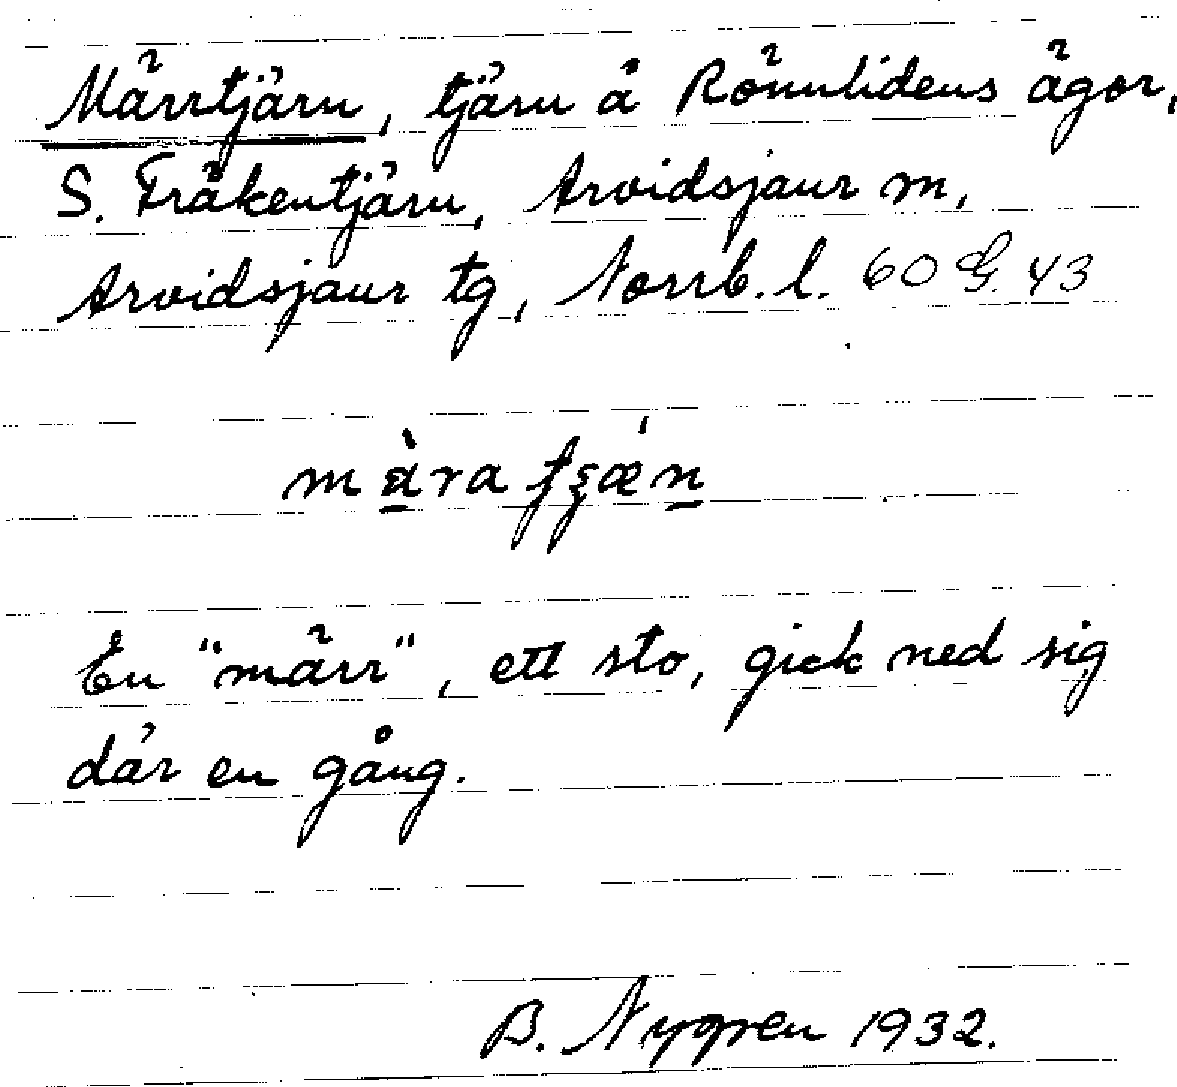 Märrtjärn, tjärn å Rönnlidens ägor,
S. Fräkentjärn, Arvidsjaur m,
Arvidsjaur tg, Norrb. l. 60 G. 43
En "märr", ett sto, gick ned sig
där en gång.
B. Nygren 1932.